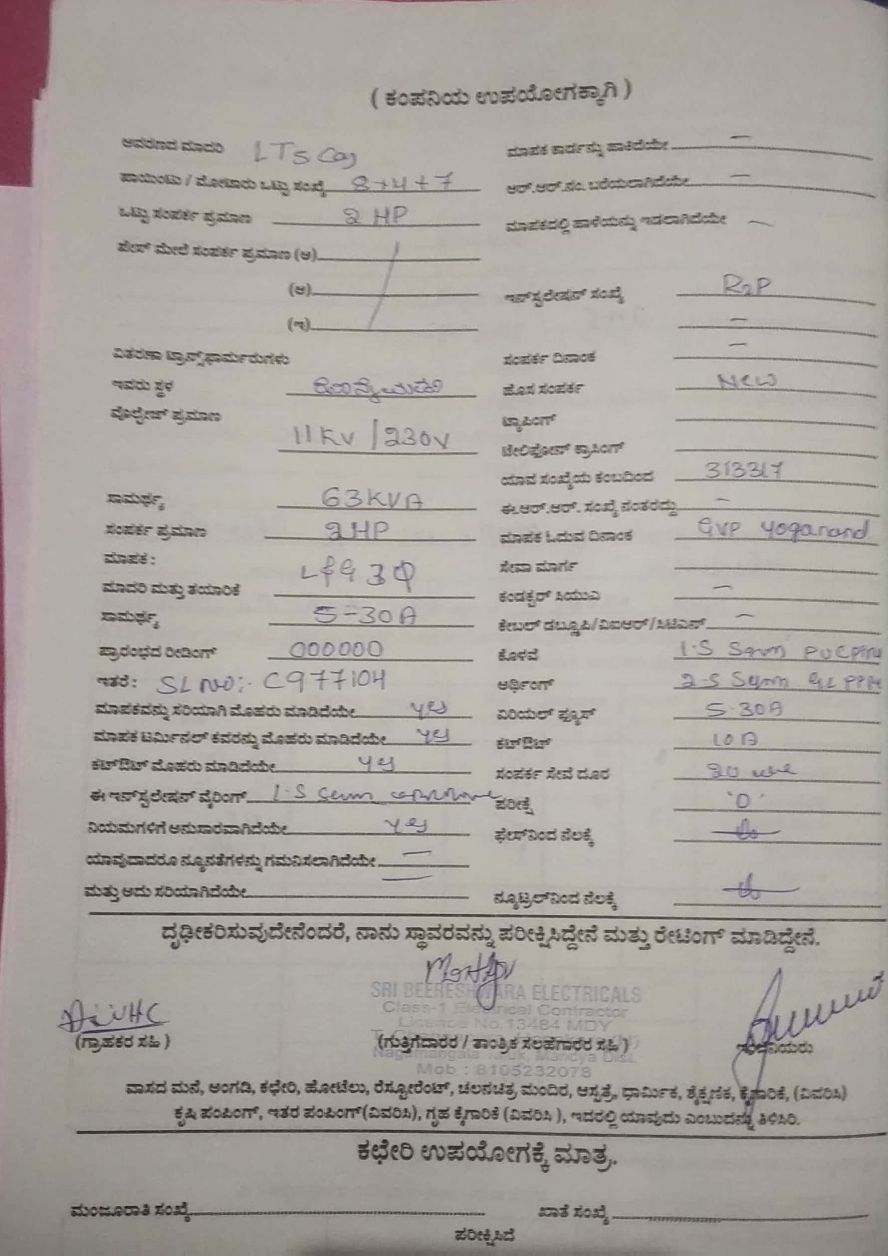 ( ಕಂಪನಿಯ ಉಪಯೋಗಕ್ಕಾಗಿ )
ಆವರಣದ ಮಾದರಿ LT5
ಮಾಪಕ ಕಾರ್ಡನ್ನು ಹಾಕಿದೆಯೇ –
ಪಾಯಿಂಟು / ಮೋಟಾರು ಒಟ್ಟು ಸಂಖ್ಯೆ 8+4+7
ಆರ್.ಆರ್.ನಂ. ಬರೆಯಲಾಗಿದೆಯೇ –
ಒಟ್ಟು ಸಂಪರ್ಕ ಪ್ರಮಾಣ 2 HP
ಮಾಪಕದಲ್ಲಿ ಹಾಳೆಯನ್ನು ಇಡಲಾಗಿದೆಯೇ –
ಫೇಸ್ ಮೇಲೆ ಸಂಪರ್ಕ ಪ್ರಮಾಣ (ಅ)
(ಆ)
ಇನ್‌ಸ್ಟಲೇಷನ್ ಸಂಖ್ಯೆ R2P
(ಇ)
–
ವಿತರಣಾ ಟ್ರಾನ್ಸ್‌ಫಾರ್ಮರುಗಳು
ಸಂಪರ್ಕ ದಿನಾಂಕ –
ಇವರು ಸ್ಥಳ
ಹೊಸ ಸಂಪರ್ಕ New
ವೋಲ್ಟೇಜ್ ಪ್ರಮಾಣ 11 KV / 230V
ಟ್ಯಾಪಿಂಗ್
ಟೇಲಿಫೋನ್ ಕ್ರಾಸಿಂಗ್
ಯಾವ ಸಂಖ್ಯೆಯ ಕಂಬದಿಂದ 313317
ಸಾಮರ್ಥ್ಯ 63KVA
ಈ.ಆರ್.ಆರ್. ಸಂಖ್ಯೆ ನಂತರದ್ದು –
ಸಂಪರ್ಕ ಪ್ರಮಾಣ 2HP
ಮಾಪಕ ಓದುವ ದಿನಾಂಕ GVP yoganand
ಮಾಪಕ :
ಸೇವಾ ಮಾರ್ಗ
ಮಾದರಿ ಮತ್ತು ತಯಾರಿಕೆ L&G 3Φ
ಕಂಡಕ್ಟರ್ ಸಿಯುಎ –
ಸಾಮರ್ಥ್ಯ 5-30A
ಕೇಬಲ್ ಡಬ್ಲ್ಯೂಪಿ/ವಿಐಆರ್/ಸಿಟಿಎಸ್ –
ಪ್ರಾರಂಭದ ರೀಡಿಂಗ್ 000000
ಕೊಳವೆ 1.5 Sqmm
ಇತರೆ : SL NO:- C977104
ಆರ್ಥಿಂಗ್ 2.5 Sqmm
ಮಾಪಕವನ್ನು ಸರಿಯಾಗಿ ಮೊಹರು ಮಾಡಿದೆಯೇ yes
ಏರಿಯಲ್ ಫ್ಯೂಸ್ 5-30A
ಮಾಪಕ ಟರ್ಮಿನಲ್ ಕವರನ್ನು ಮೊಹರು ಮಾಡಿದೆಯೇ yes
ಕಟ್‌ಔಟ್ 10 A
ಕಟ್‌ಔಟ್ ಮೊಹರು ಮಾಡಿದೆಯೇ yes
ಸಂಪರ್ಕ ಸೇವೆ ದೂರ 20
ಈ ಇನ್‌ಸ್ಟಲೇಷನ್ ವೈರಿಂಗ್ 1.5
ಪರೀಕ್ಷೆ '0'
ನಿಯಮಗಳಿಗೆ ಅನುಸಾರವಾಗಿದೆಯೇ yes
ಫೇಸ್‌ನಿಂದ ನೆಲಕ್ಕೆ
ಯಾವುದಾದರೂ ನ್ಯೂನತೆಗಳನ್ನು ಗಮನಿಸಲಾಗಿದೆಯೇ –
ಮತ್ತು ಅದು ಸರಿಯಾಗಿದೆಯೇ –
ನ್ಯೂಟ್ರಲ್‌ನಿಂದ ನೆಲಕ್ಕೆ
ದೃಢೀಕರಿಸುವುದೇನೆಂದರೆ, ನಾನು ಸ್ಥಾವರವನ್ನು ಪರೀಕ್ಷಿಸಿದ್ದೇನೆ ಮತ್ತು ರೇಟಿಂಗ್ ಮಾಡಿದ್ದೇನೆ.
SRI BEERESHWARA ELECTRICALS
Class-1 Electrical Contractor
Licence No.13484 MDY
(ಗ್ರಾಹಕರ ಸಹಿ )
(ಗುತ್ತಿಗೆದಾರರ / ತಾಂತ್ರಿಕ ಸಲಹೆಗಾರರ ಸಹಿ )
Nagamangala Taluk, Mandya Dist.
Mob : 8105232078
ವಾಸದ ಮನೆ, ಅಂಗಡಿ, ಕಛೇರಿ, ಹೋಟೆಲು, ರೆಸ್ಟೋರೆಂಟ್, ಚಲನಚಿತ್ರ ಮಂದಿರ, ಆಸ್ಪತ್ರೆ, ಧಾರ್ಮಿಕ, ಶೈಕ್ಷಣಿಕ, ಕೈಗಾರಿಕೆ, (ವಿವರಿಸಿ)
ಕೃಷಿ ಪಂಪಿಂಗ್, ಇತರ ಪಂಪಿಂಗ್(ವಿವರಿಸಿ), ಗೃಹ ಕೈಗಾರಿಕೆ (ವಿವರಿಸಿ ), ಇದರಲ್ಲಿ ಯಾವುದು ಎಂಬುದನ್ನು ತಿಳಿಸಿರಿ.
ಕಛೇರಿ ಉಪಯೋಗಕ್ಕೆ ಮಾತ್ರ.
ಮಂಜೂರಾತಿ ಸಂಖ್ಯೆ
ಖಾತೆ ಸಂಖ್ಯೆ
ಪರೀಕ್ಷಿಸಿದೆ